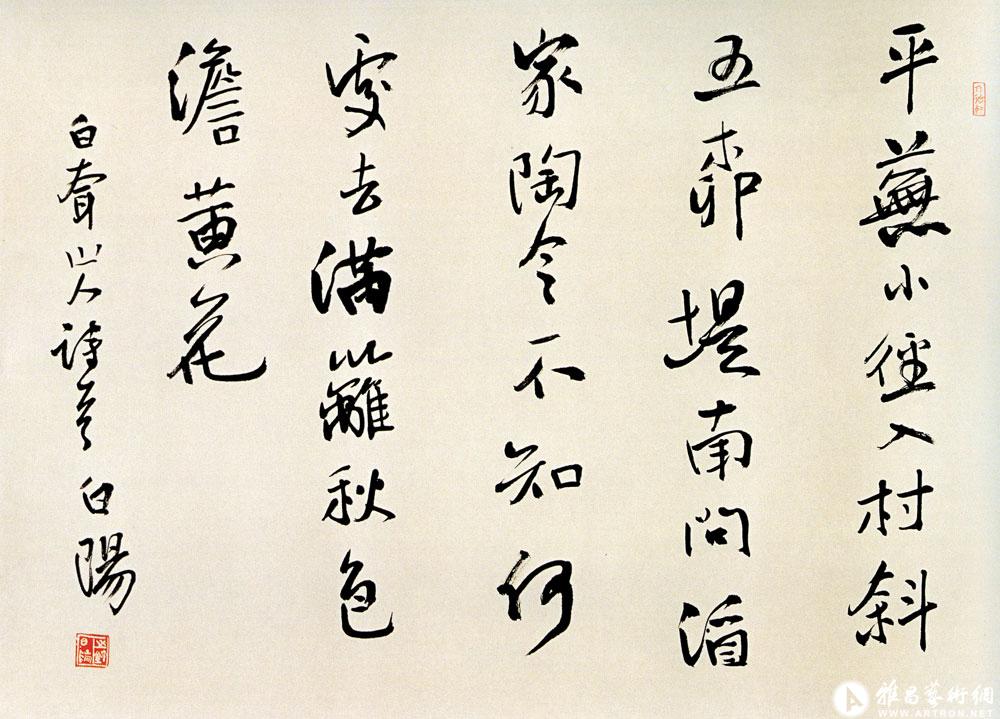 平蕪小徑入村斜
五桺堤南問酒
家陶令不知何
處去滿籬秋色
澹黃花
白耷山人詩 白陽
雅昌藝術網
WWW.ARTRON.NET